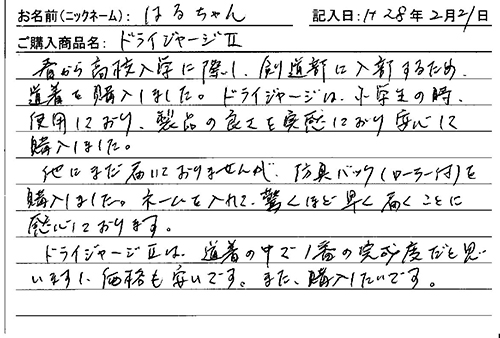 お名前(ニックネーム): はるちゃん 記入日: H28年2月21日
ご購入商品名: ドライジャージⅡ
春から高校入学に際し、剣道部に入部するため、
道着を購入しました。ドライジャージは、小学生の時、
使用しており、製品の良さを実感しており安心して
購入しました。
他にまだ届いておりませんが、防具バック(ローラー付)を
購入しました。ネームを入れて、驚くほど早く届くことに
感心しております。
ドライジャージⅡは、道着の中で1番の完成度だと思
いますし、価格も安いです。また、購入したいです。